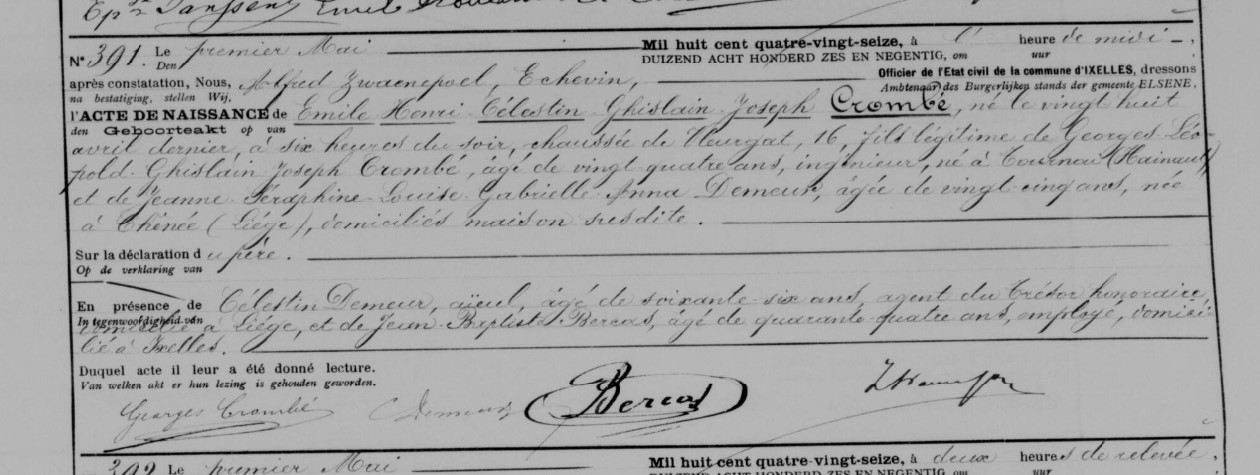 Epse Janssens Emile
N° 391. Le premier Mai Mil huit cent quatre-vingt-seize, à l' heure de midi,
Den DUIZEND ACHT HONDERD ZES EN NEGENTIG, om uur
après constatation, Nous, Alfred Zwaenepoel, Echevin, Officier de l'Etat civil de la commune d'IXELLES, dressons
na bestatiging, stellen Wij, Ambtenaar des Burgerlijken stands der gemeente ELSENE.
l'ACTE DE NAISSANCE de Emile Henri Célestin Ghislain Joseph Crombé, né le vingt huit
den Geboorteakt op van
avril dernier, à six heures du soir, chaussée de Vleurgat, 16, fils légitime de Georges Léo-
pold Ghislain Joseph Crombé, âgé de vingt-quatre ans, ingénieur, né à Tournai (Hainaut)
et de Jeanne Séraphine Louise Gabrielle Anna Demeur, âgée de vingt-cinq ans, née
à Chénée (Liége), domiciliés maison susdite.
Sur la déclaration du père.
Op de verklaring van
En présence de Célestin Demeur, aïeul, âgé de soixante-six ans, agent du Trésor honoraire,
In tegenwoordigheid van
domicilié à Liége, et de Jean-Baptiste Bercas, âgé de quarante-quatre ans, employé, domici-
lié à Ixelles.
Duquel acte il leur a été donné lecture.
Van welken akt er hun lezing is gehouden geworden.
Georges Crombé C Demeur Bercas
392 Le premier Mai Mil huit cent quatre-vingt-seize, à deux heures de relevée,
DUIZEND ACHT HONDERD ZES EN NEGENTIG, om uur